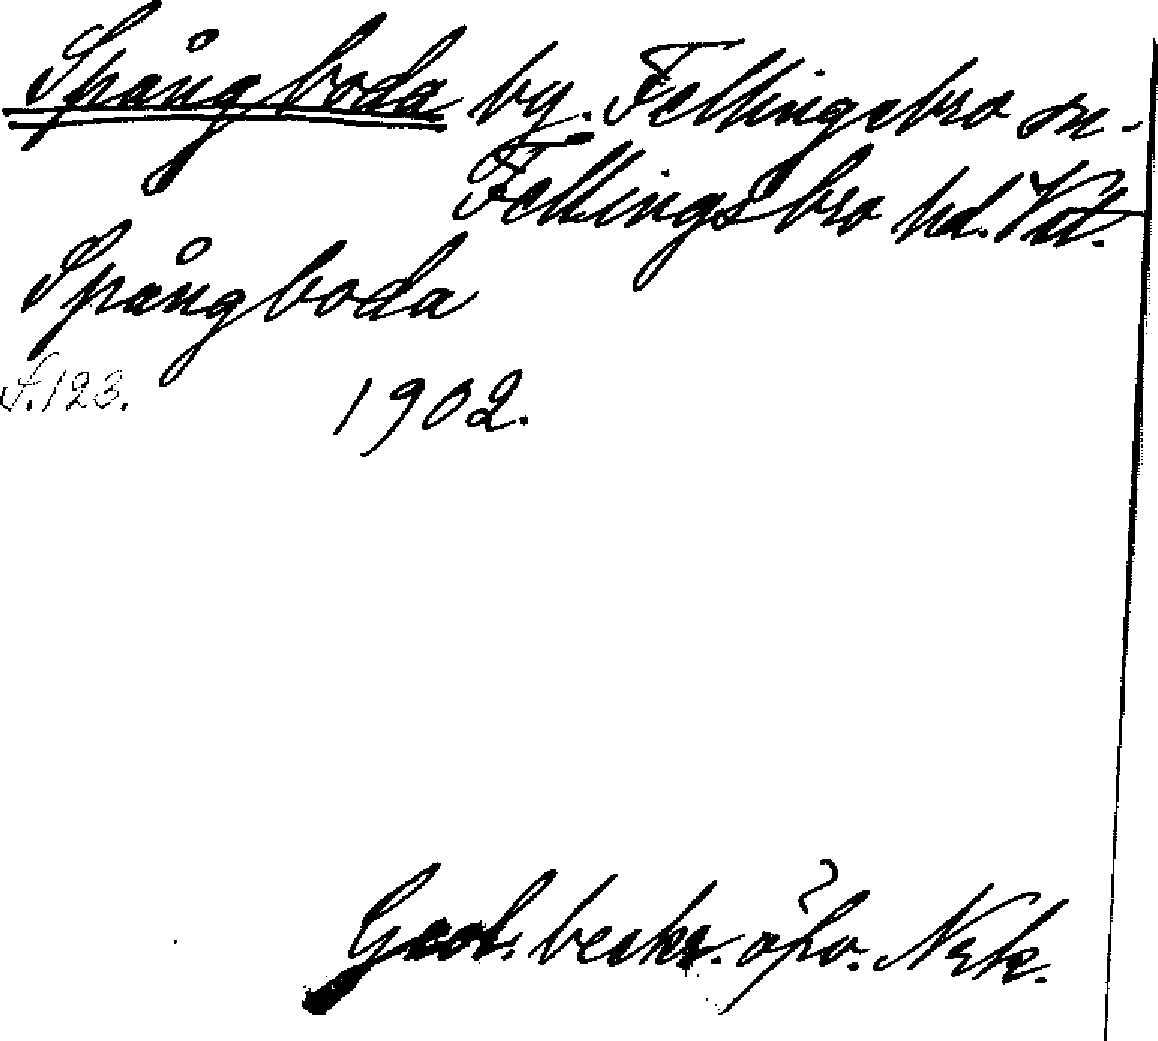 Spångboda by. Fellingsbro sn.
Fellingsbro hd. Vstl.
Spångboda
S. 123. 1902.
Geol. beskr. öfv. Nrk.